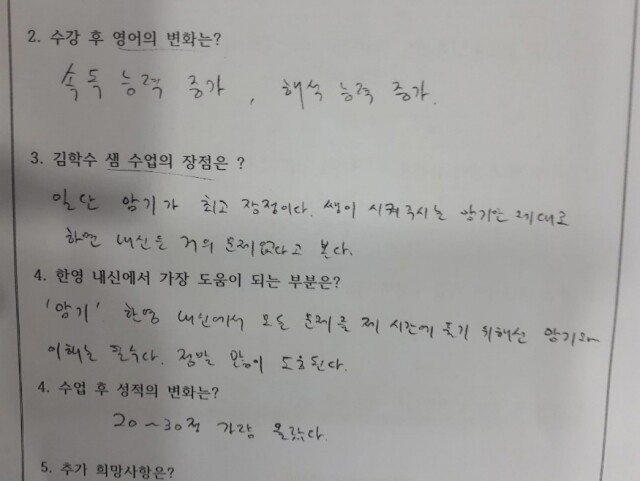 2. 수강 후 영어의 변화는?
속독 능력 증가, 해석 능력 증가.
3. 김학수 샘 수업의 장점은 ?
일단 암기가 최고 장점이다. 쌤이 시켜주시는 암기만 제대로
하면 내신은 거의 문제없다고 본다.
4. 한영 내신에서 가장 도움이 되는 부분은?
'암기' 한영 내신에서 모든 문제를 제 시간에 풀기 위해선 암기와
이해는 필수다. 정말 많이 도움된다.
4. 수업 후 성적의 변화는?
20~30점 가량 올랐다.
5. 추가 희망사항은?